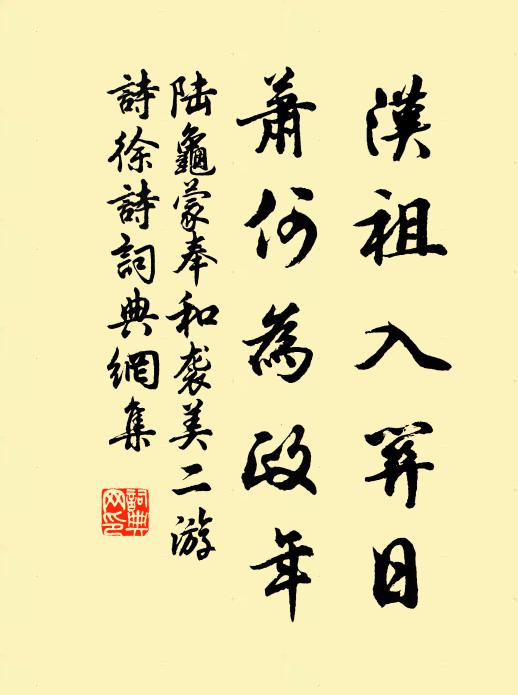 漢祖入關日
蕭何為政年
陸龜蒙奉和袭美二游
詩徐詩詞典網集
詞典
网印